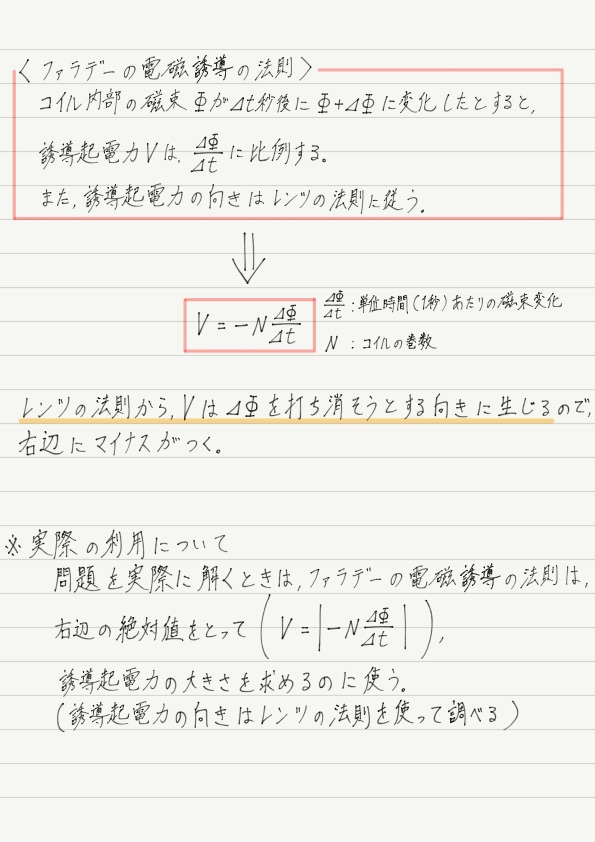 〈ファラデーの電磁誘導の法則〉
コイル内部の磁束ΦがΔt秒後にΦ+ΔΦに変化したとすると,
誘導起電力Vは, ΔΦ/Δt に比例する。
また, 誘導起電力の向きはレンツの法則に従う。
⇓
V = -N ΔΦ/Δt
ΔΦ/Δt : 単位時間(1秒)あたりの磁束変化
N : コイルの巻数
レンツの法則から, VはΔΦを打ち消そうとする向きに生じるので,
右辺にマイナスがつく。
※実際の利用について
問題を実際に解くときは, ファラデーの電磁誘導の法則は,
右辺の絶対値をとって ( V = |-N ΔΦ/Δt| ),
誘導起電力の大きさを求めるのに使う。
(誘導起電力の向きはレンツの法則を使って調べる)